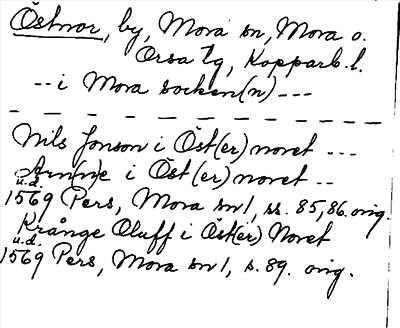 Östnor, by, Mora sn, Mora o.
Orsa tg, Kopparb. l.
-- i Mora socken(n) ---
Nils Jonson i Öst(er) noret ---
Arn(n)e i Öst(er) noret --
u.d.
1569 Pers, Mora sn 1, ss. 85, 86. orig.
Krånge Oluff i Öst(er) Noret
u.d.
1569 Pers, Mora sn 1, s. 89. orig.